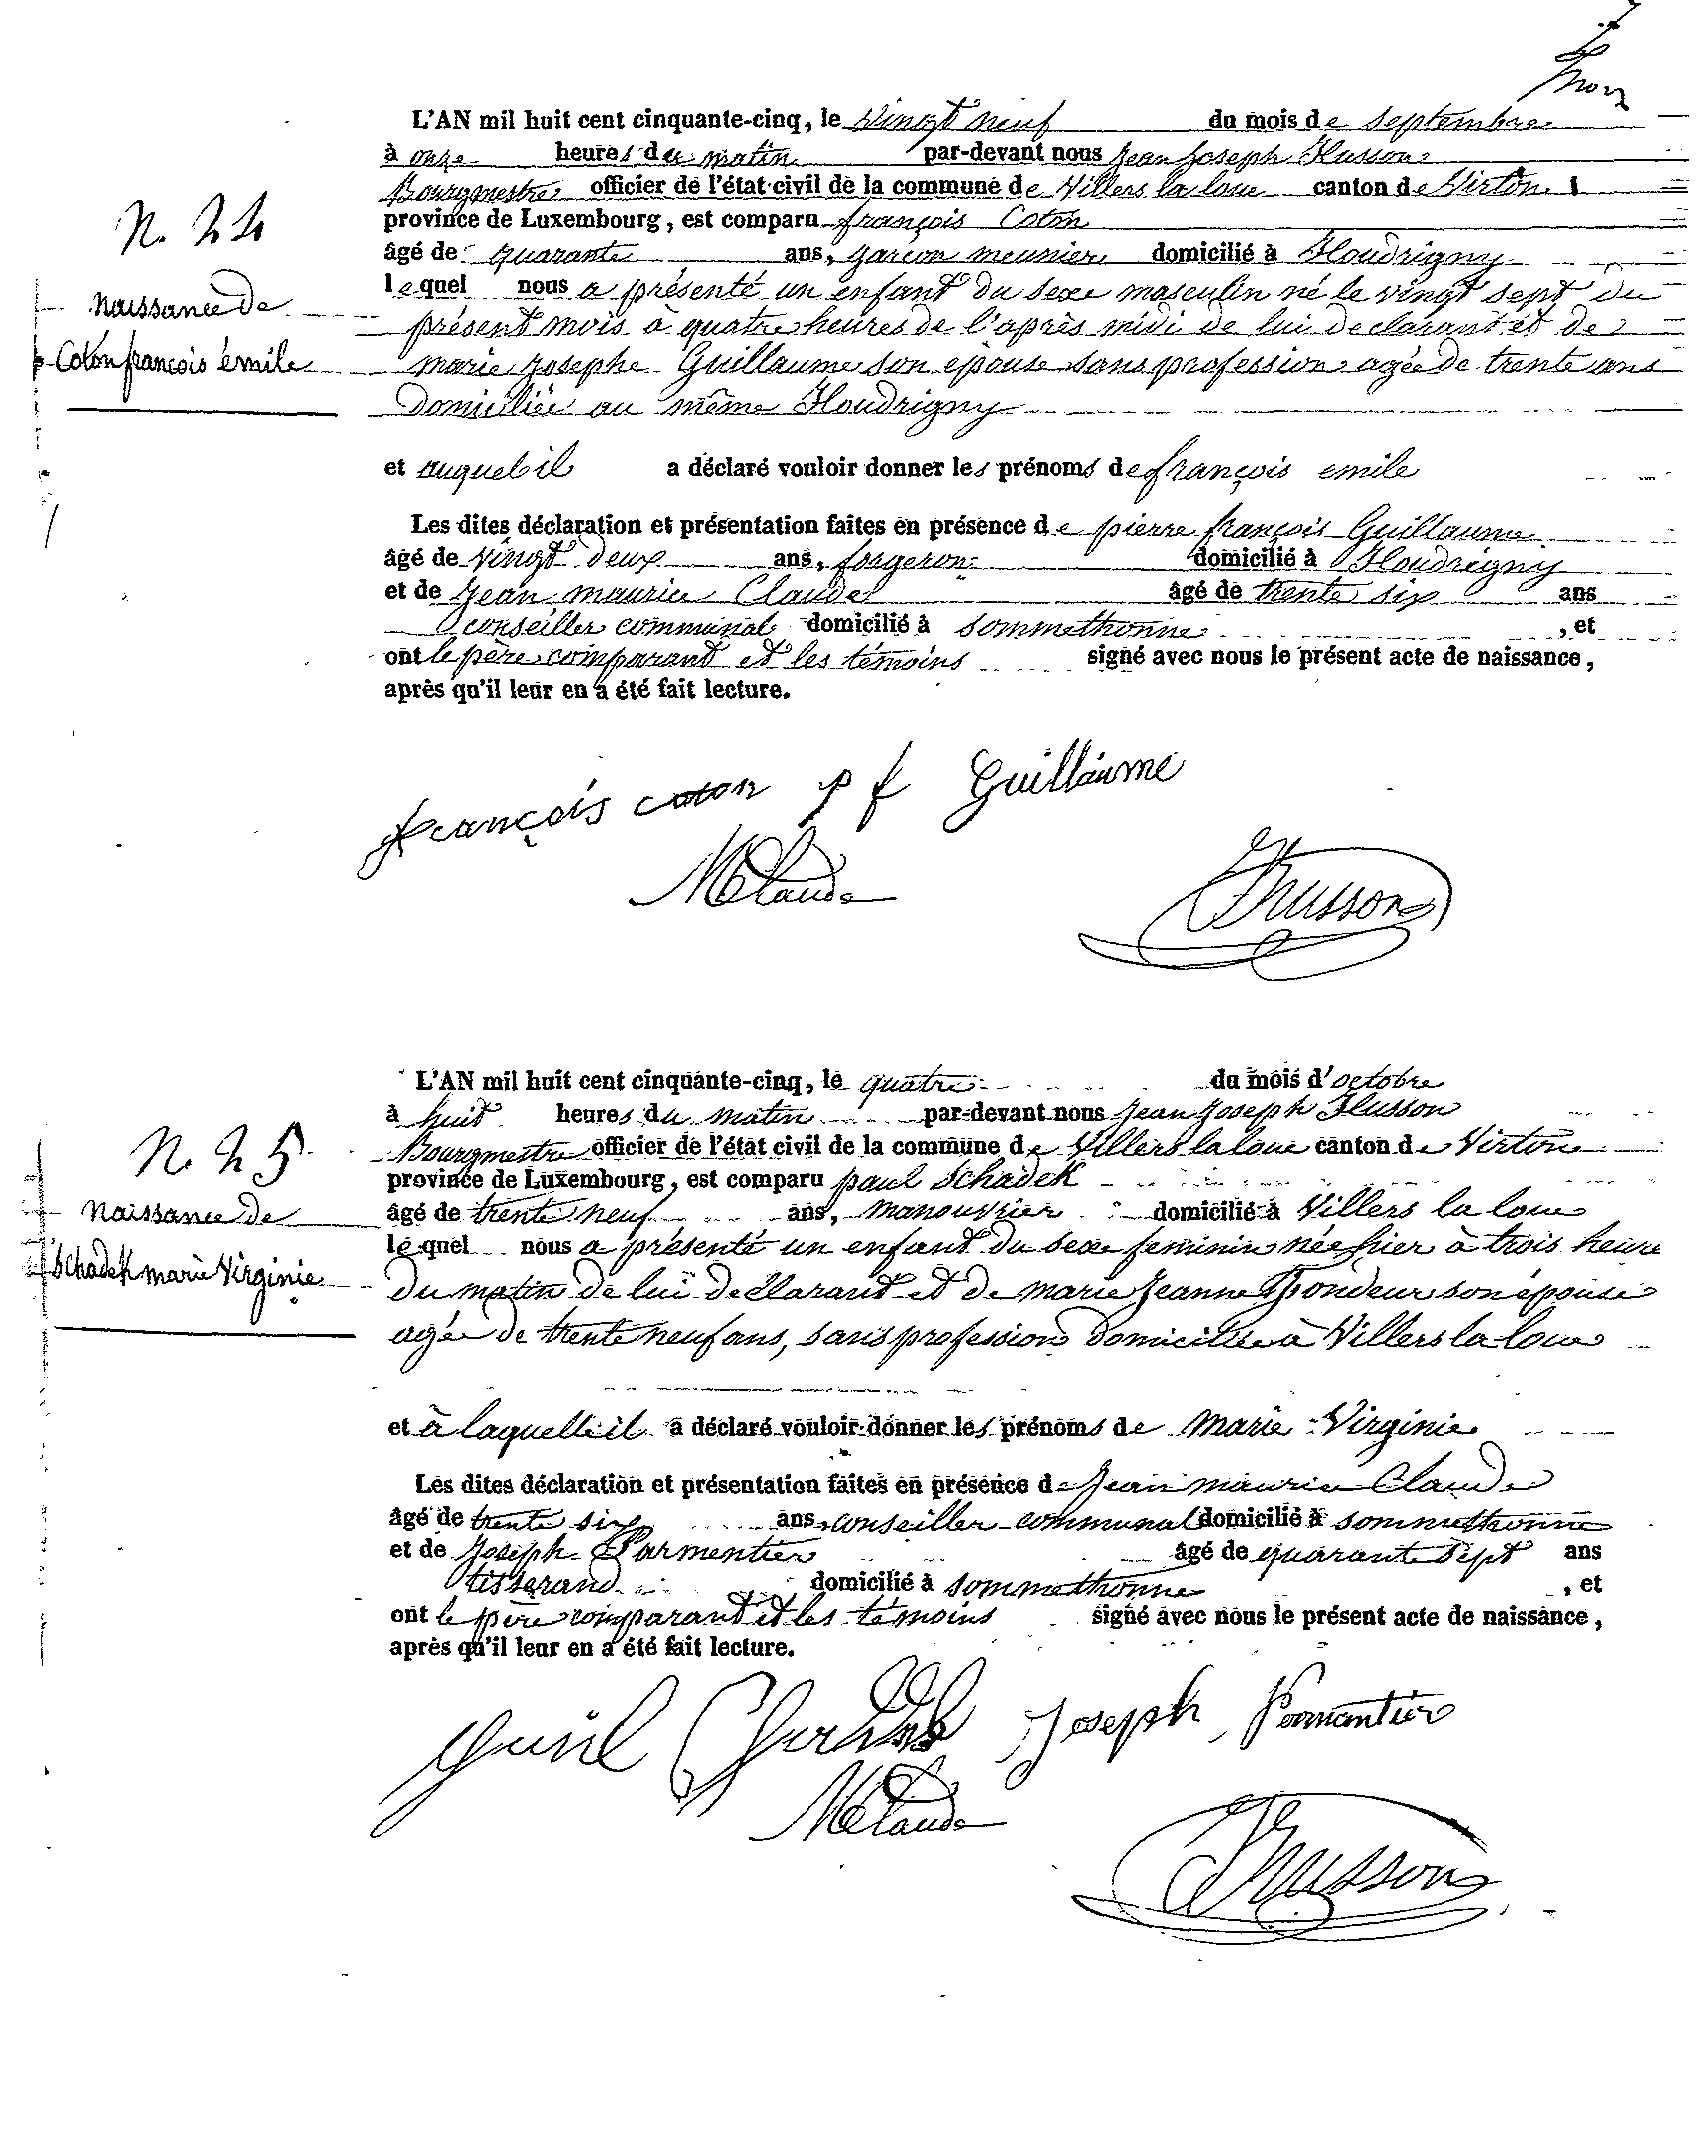 L'AN mil huit cent cinquante-cinq, le vingt neuf du mois de septembre
à onze heures du matin par-devant nous Jean Joseph Husson
Bourgmestre officier de l'état civil de la commune de Villers la loue canton de Virton
N. 24
province de Luxembourg, est comparu françois Coton
âgé de quarante ans, garcon meunier domicilié à Houdrigny
lequel nous a présenté un enfant du sexe masculin né le vingt sept du
naissance de
présent mois à quatre heures de l'après midi de lui declarant et de
Coton françois émile
marie josephe Guillaume son epouse sans profession agée de trente ans
Domiciliée au même Houdrigny
et auquel il a déclaré vouloir donner les prénoms de françois emile
Les dites déclaration et présentation faites en présence de pierre françois Guillaume
âgé de vingt deux ans, forgeron domicilié à Houdrigny
et de Jean maurice Claude âgé de trente six ans
conseiller communal domicilié à sommethonne , et
ont le père comparant et les témoins signé avec nous le présent acte de naissance,
après qu'il leur en a été fait lecture.
françois coton p f Guillaume
MClaude
Husson
L'AN mil huit cent cinquante-cinq, le quatre du mois d'octobre
à huit heures du matin par-devant nous Jean Joseph Husson
N. 25
Bourgmestre officier de l'état civil de la commune de Villers la loue canton de Virton
province de Luxembourg, est comparu paul Schadek
naissance de
âgé de trente neuf ans, manouvrier domicilié à Villers la loue
lequel nous a présenté un enfant du sexe feminin née hier à trois heure
Schadek marie Virginie
du matin de lui declarant et de marie Jeanne Thondeur son épouse
agée de trente neuf ans, sans profession domiciliée à Villers la loue
et à laquelle il a déclaré vouloir donner les prénoms de marie Virginie
Les dites déclaration et présentation faites en présence de Jean maurice Claude
âgé de trente six ans, conseiller communal domicilié à sommethonne
et de Joseph Parmentier âgé de quarante sept ans
tisserand domicilié à sommethonne , et
ont le père comparant et les témoins signé avec nous le présent acte de naissance,
après qu'il leur en a été fait lecture.
Joseph Parmantier
MClaude
Husson